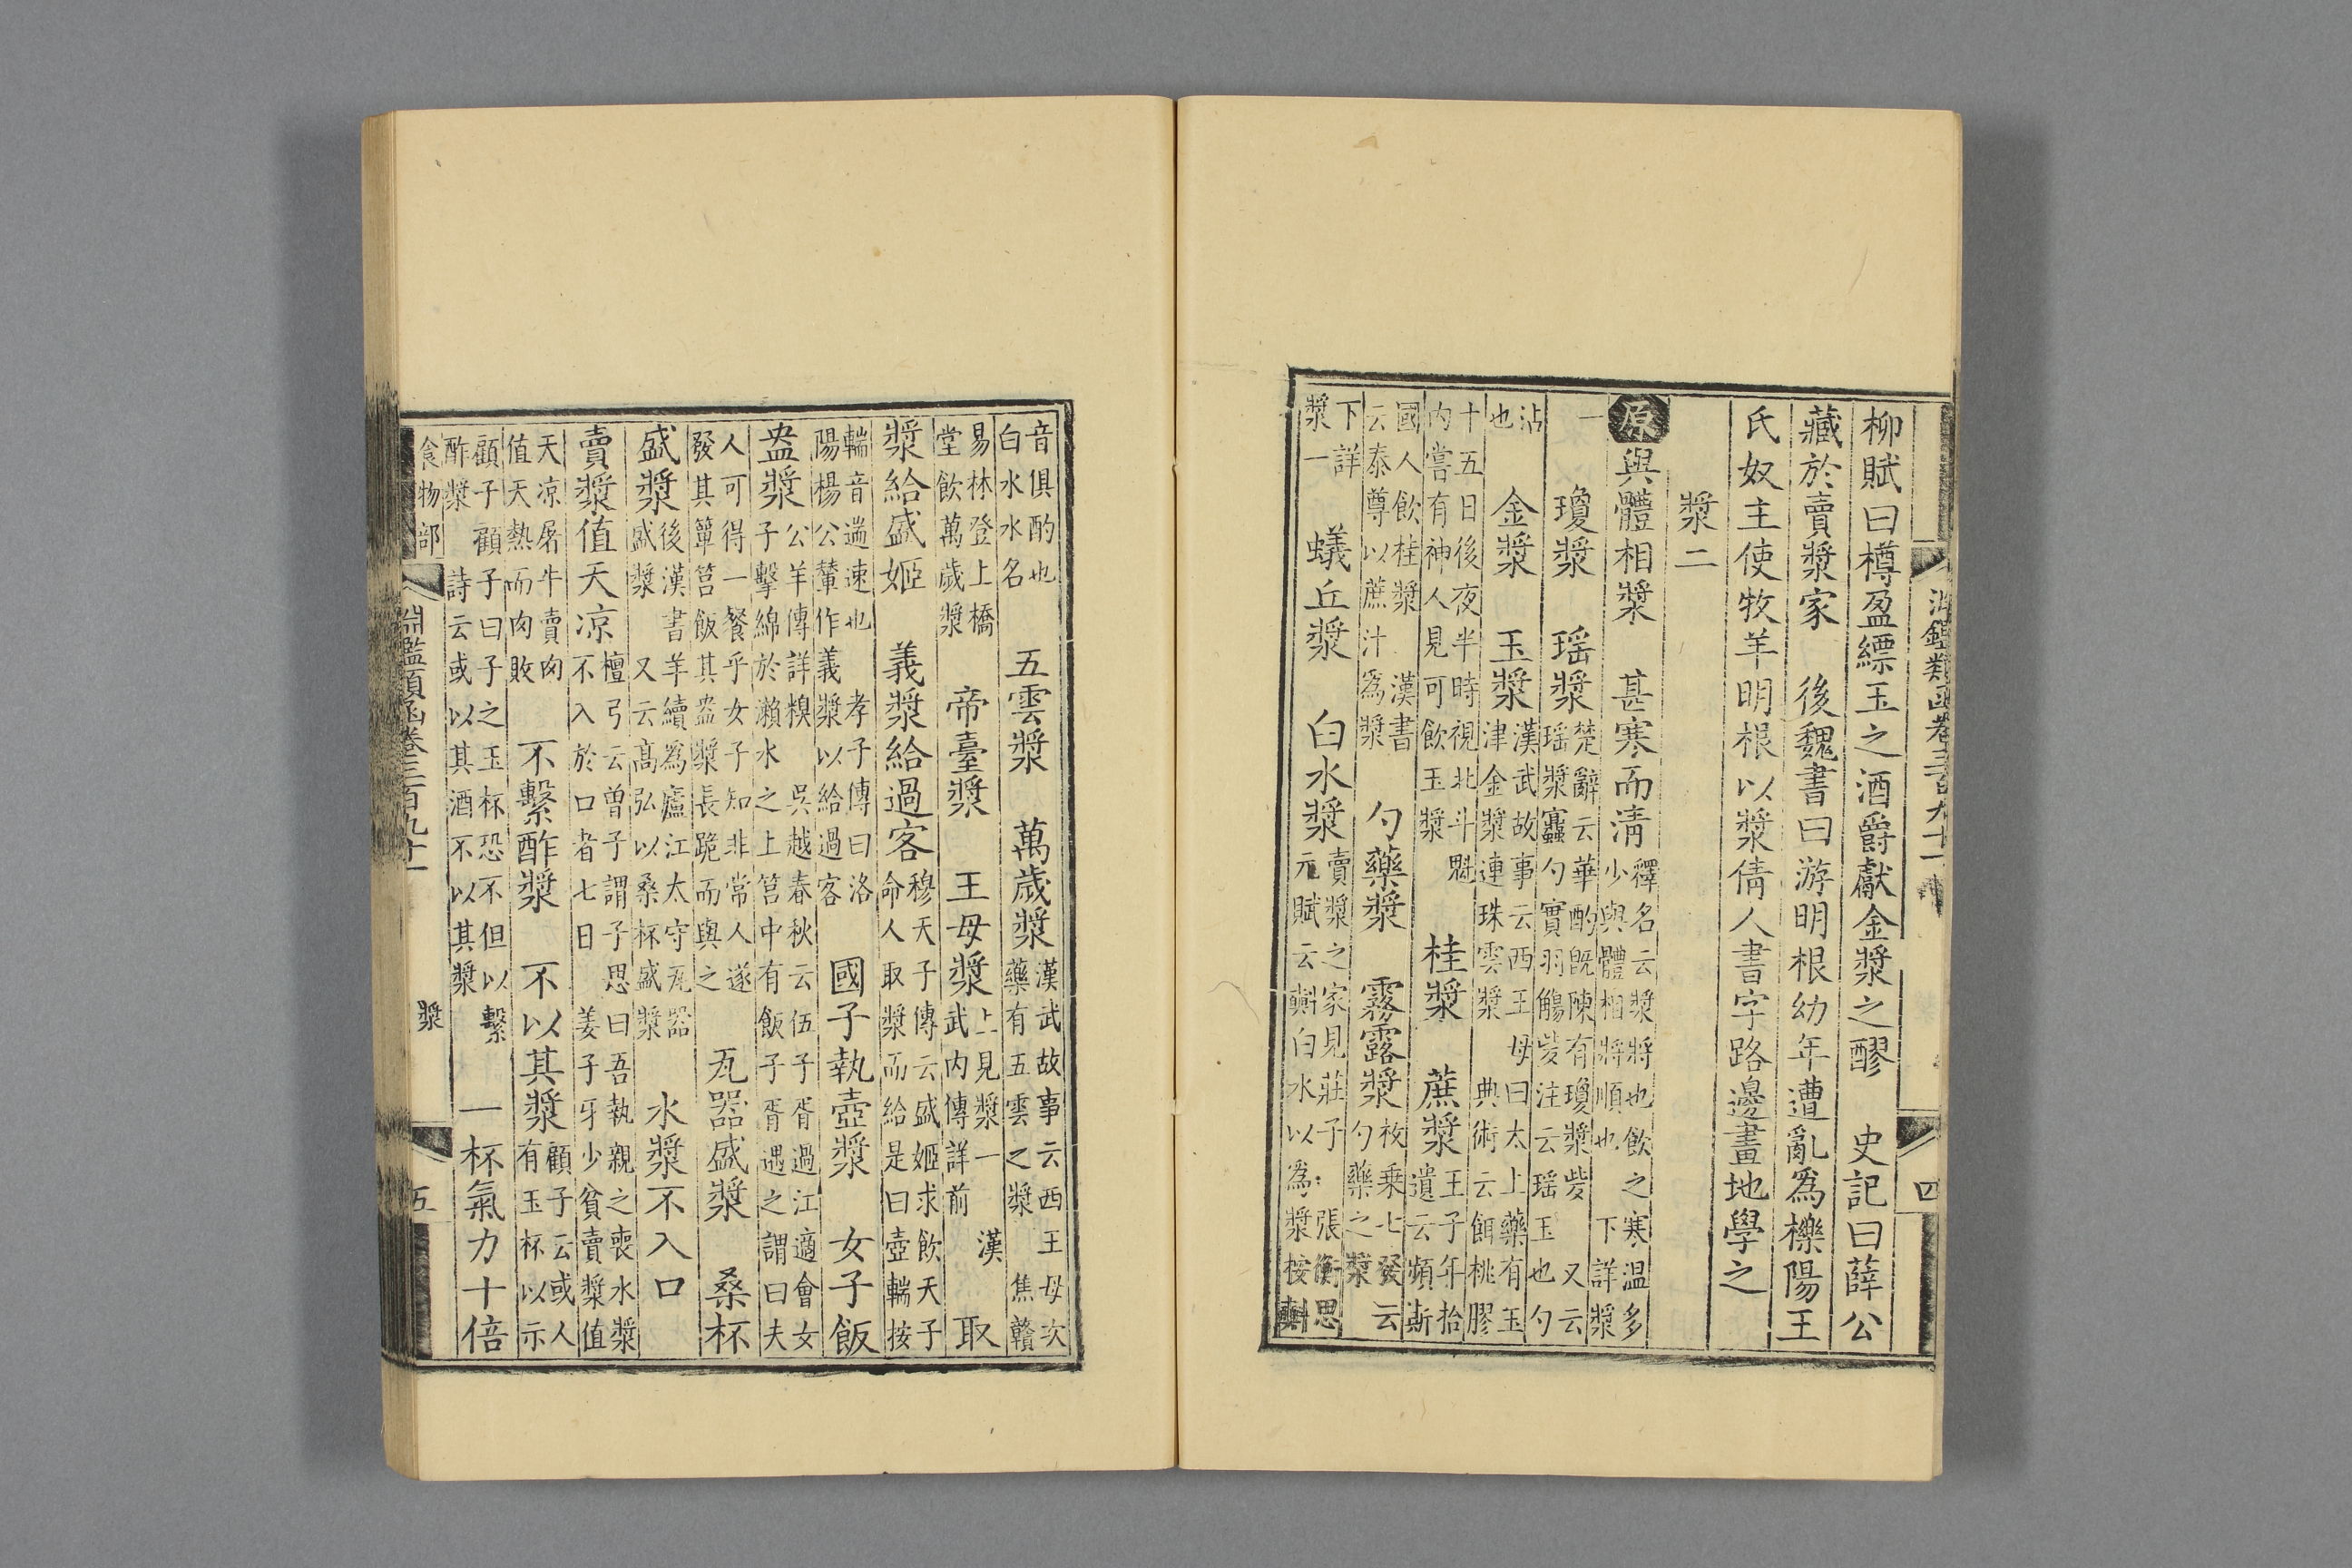 淵鑑類函卷三百九十一 四
柳賦曰樽盈縹玉之酒爵獻金漿之醪 史記曰薛公
藏於賣漿家 後魏書曰游明根幼年遭亂爲櫟陽王
氏奴主使牧羊明根以漿倩人書字路邊畫地學之
漿二
原與體相漿 甚寒而清 釋名云漿將也飲之寒温多
少與體相將順也 下詳漿
一 瓊漿 瑶漿 楚辭云華酌旣陳有瓊漿些 又云
瑶漿蠠勺實羽觴些注云瑶玉也勺
沾
也 金漿 玉漿 漢武故事云西王母曰太上藥有玉
津金漿連珠雲漿 典術云餌桃膠
十五日後夜半時視北斗魁
内嘗有神人見可飲玉漿 桂漿 蔗漿 王子年拾
遺云頻斯
國人飲桂漿 漢書
云泰尊以蔗汁爲漿 勺藥漿 霧露漿 枚乗七發云
勺藥之漿
下詳
漿一 蟻丘漿 白水漿 賣漿之家見莊子 張衡思
元賦云㪺白水以爲漿按㪺
音俱酌也
白水水名 五雲漿 萬歲漿 漢武故事云西王母次
藥有五雲之漿 焦贛
易林登上橋
堂飲萬歲漿 帝臺漿 王母漿 上見漿一 漢
武内傳詳前 取
漿給盛姬 義漿給過客 穆天子傳云盛姬求飲天子
命人取漿而給是曰壺輲按
輲音遄速也 孝子傳曰洛
陽楊公輦作義漿以給過客 國子執壺漿 女子飯
盎漿 公羊傳詳糗 吳越春秋云伍子胥過江適會女
子擊綿於瀬水之上筥中有飯子胥遇之謂曰夫
人可得一餐乎女子知非常人遂
發其簞筥飯其盎漿長跪而與之 瓦器盛漿 桑杯
盛漿 後漢書羊續爲廬江太守瓦器
盛漿 又云高弘以桑杯盛漿 水漿不入口
賣漿值天凉 檀弓云曾子謂子思曰吾執親之喪水漿
不入於口者七日 姜子牙少貧賣漿值
天凉屠牛賣肉
值天熱而肉敗 不繫酢漿 不以其漿 顧子云或人
有玉杯以示
顧子顧子曰子之玉杯恐不但以繫
酢漿 詩云或以其酒不以其漿 一杯氣力十倍
食物部 淵鑑類函卷三百九十一 漿 五